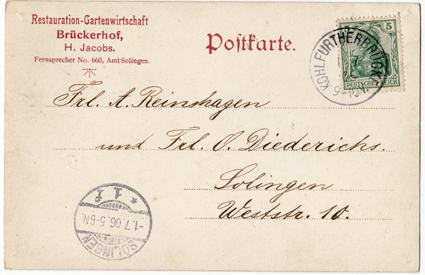 Restauration-Gartenwirtschaft
Brückerhof,
H. Jacobs.
Fernsprecher No. 660, Amt Solingen.
Postkarte.
5
DEUTSCHES REICH
KOHLFURTHERBRÜCKE
Frl. A. Reinshagen
und Frl. O. Diederichs.
Solingen
Weststr. 10.
SOLINGEN
* 1 f
-1.7.06.5-6N.